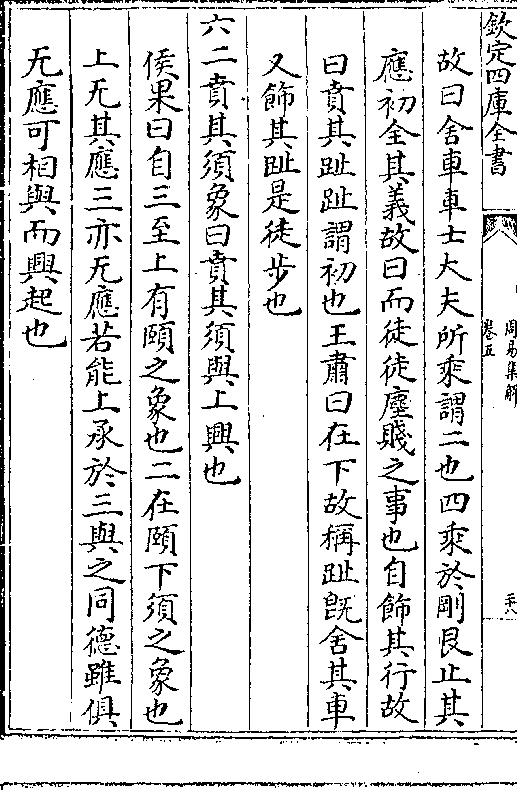 欽定四庫全書
周易集解
卷五
二十八
故曰舍車車士大夫所乘謂二也四乘於剛艮止其
應初全其義故曰而徒徒塵賤之事也自飾其行故
曰賁其趾趾謂初也王肅曰在下故稱趾旣舍其車
又飾其趾是徒步也
六二賁其須象曰賁其須與上興也
侯果曰自三至上有頤之象也二在頤下須之象也
上无其應三亦无應若能上承於三與之同德雖俱
无應可相與而興起也